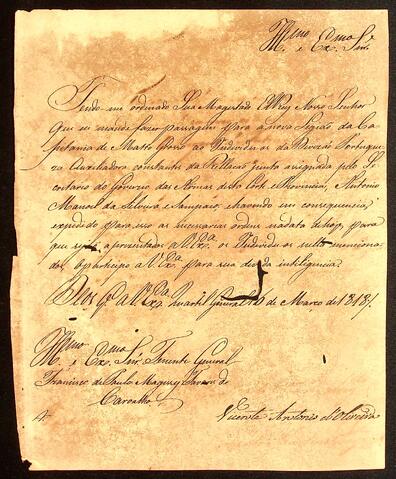 Illmo e Exmo Snr.
Tendo-me ordenado Sua Magestade ElRey Nosso Senhor
Que se mande fazer passagem para a nova Legião da Ca-
pitania de Matto Grosso aos Individuos da Divizão Portugue-
za Auxiliadora constantes da Rellação junta assignada pelo Se-
cretario do Governo das Armas desta Corte e Provincia, Antonio
Manoel da Silveira e Sampaio: e havendo em consequencia
expedido para isso as necessarias ordens na data de hoje, para
que sejão aprezentados a V. Exa. os Individuos nella menciona-
dos, o participo a V. Exa. para sua devida intelligencia.
Deos Gde a V. Exa. Quartel General 16 de Março de 1818.
Illmo e Exmo Snr. Tenente General
Francisco de Paula Magessy Tavares de
Carvalho
Vicente Antonio d'Oliveira